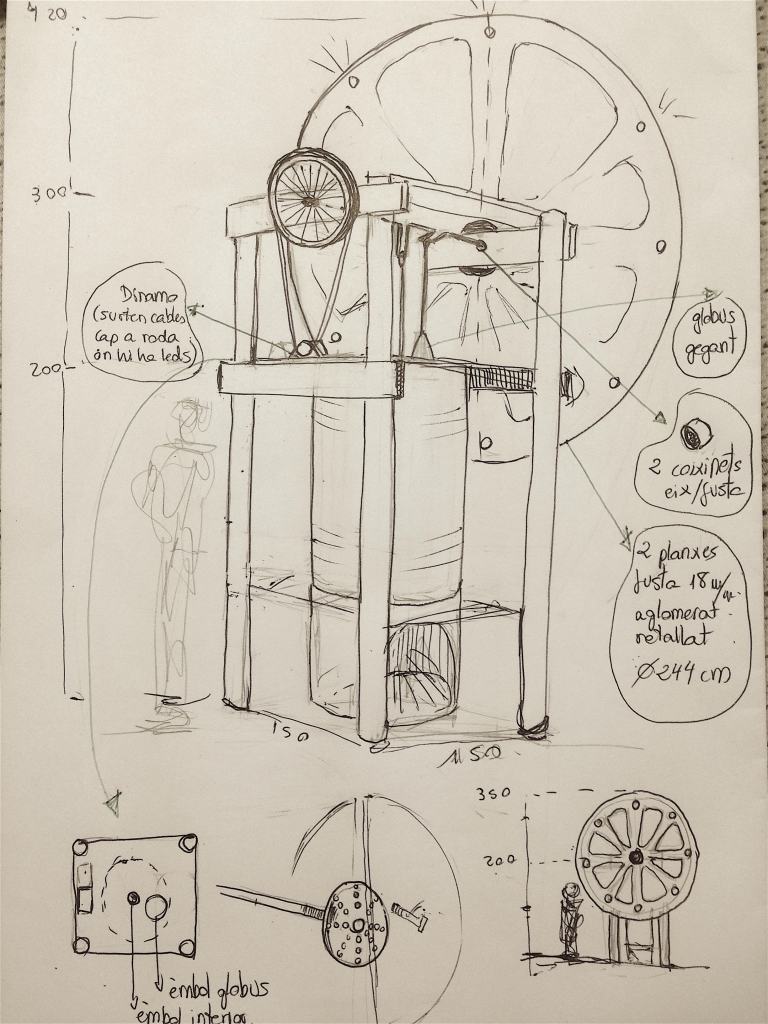 420
300
200
Dinamo
(surten cables
cap a roda
on hi ha leds)
globus
gegant
2 coixinets
eix/fusta
2 planxes
fusta 18 m/m
aglomerat
retallat
Ø244 cm
150
150
350
200
èmbol globus
èmbol interior